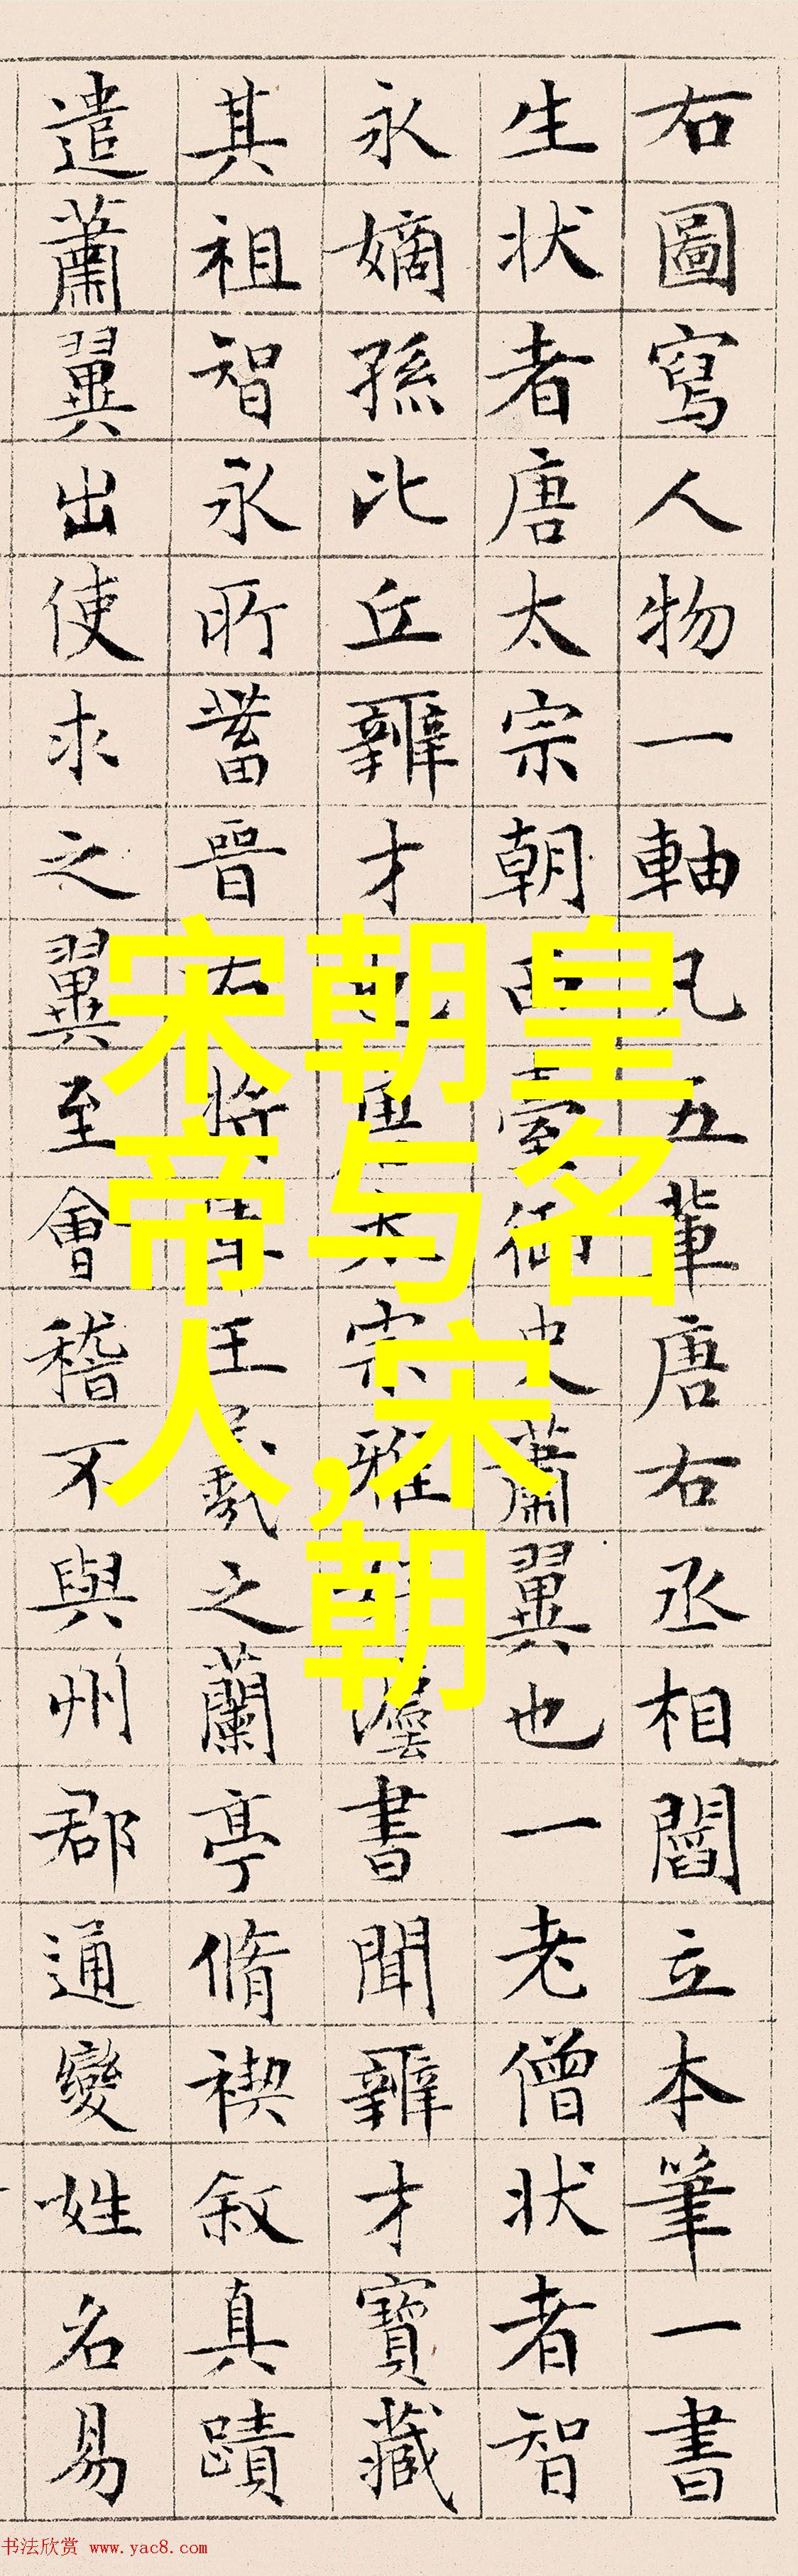 右圖寫人物一軸凡五輩唐右丞相閻立本筆一書
生狀者唐太宗朝西臺御史蕭翼也一老僧狀者智
永嫡孫比丘辯才也太宗雅灋書聞辯才寶藏
其祖智永所蓄晉右將軍王羲之蘭亭脩禊叙真蹟
遣蕭翼出使求之翼至會稽不與州郡通變姓名易
宋朝皇
帝与名
人,宋
朝
书法欣赏 www.yac8.com